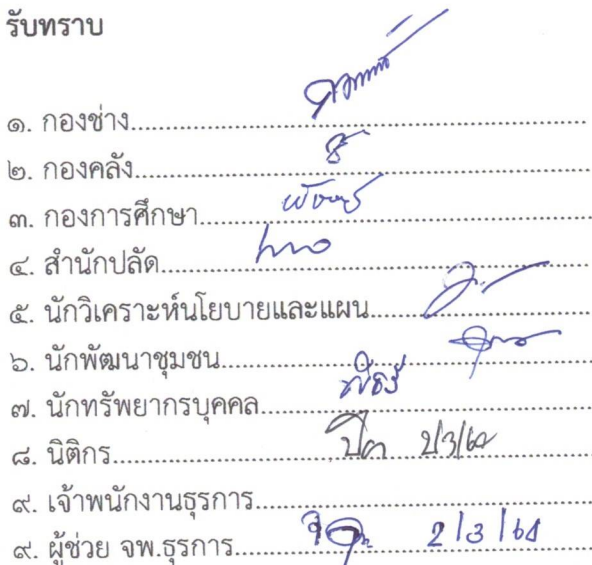 รับทราบ
๑. กองช่าง
๒. กองคลัง
๓. กองการศึกษา
๔. สำนักปลัด
๕. นักวิเคราะห์นโยบายและแผน
๖. นักพัฒนาชุมชน
๗. นักทรัพยากรบุคคล
๘. นิติกร
๙. เจ้าพนักงานธุรการ
๙. ผู้ช่วย จพ.ธุรการ 2/3/64